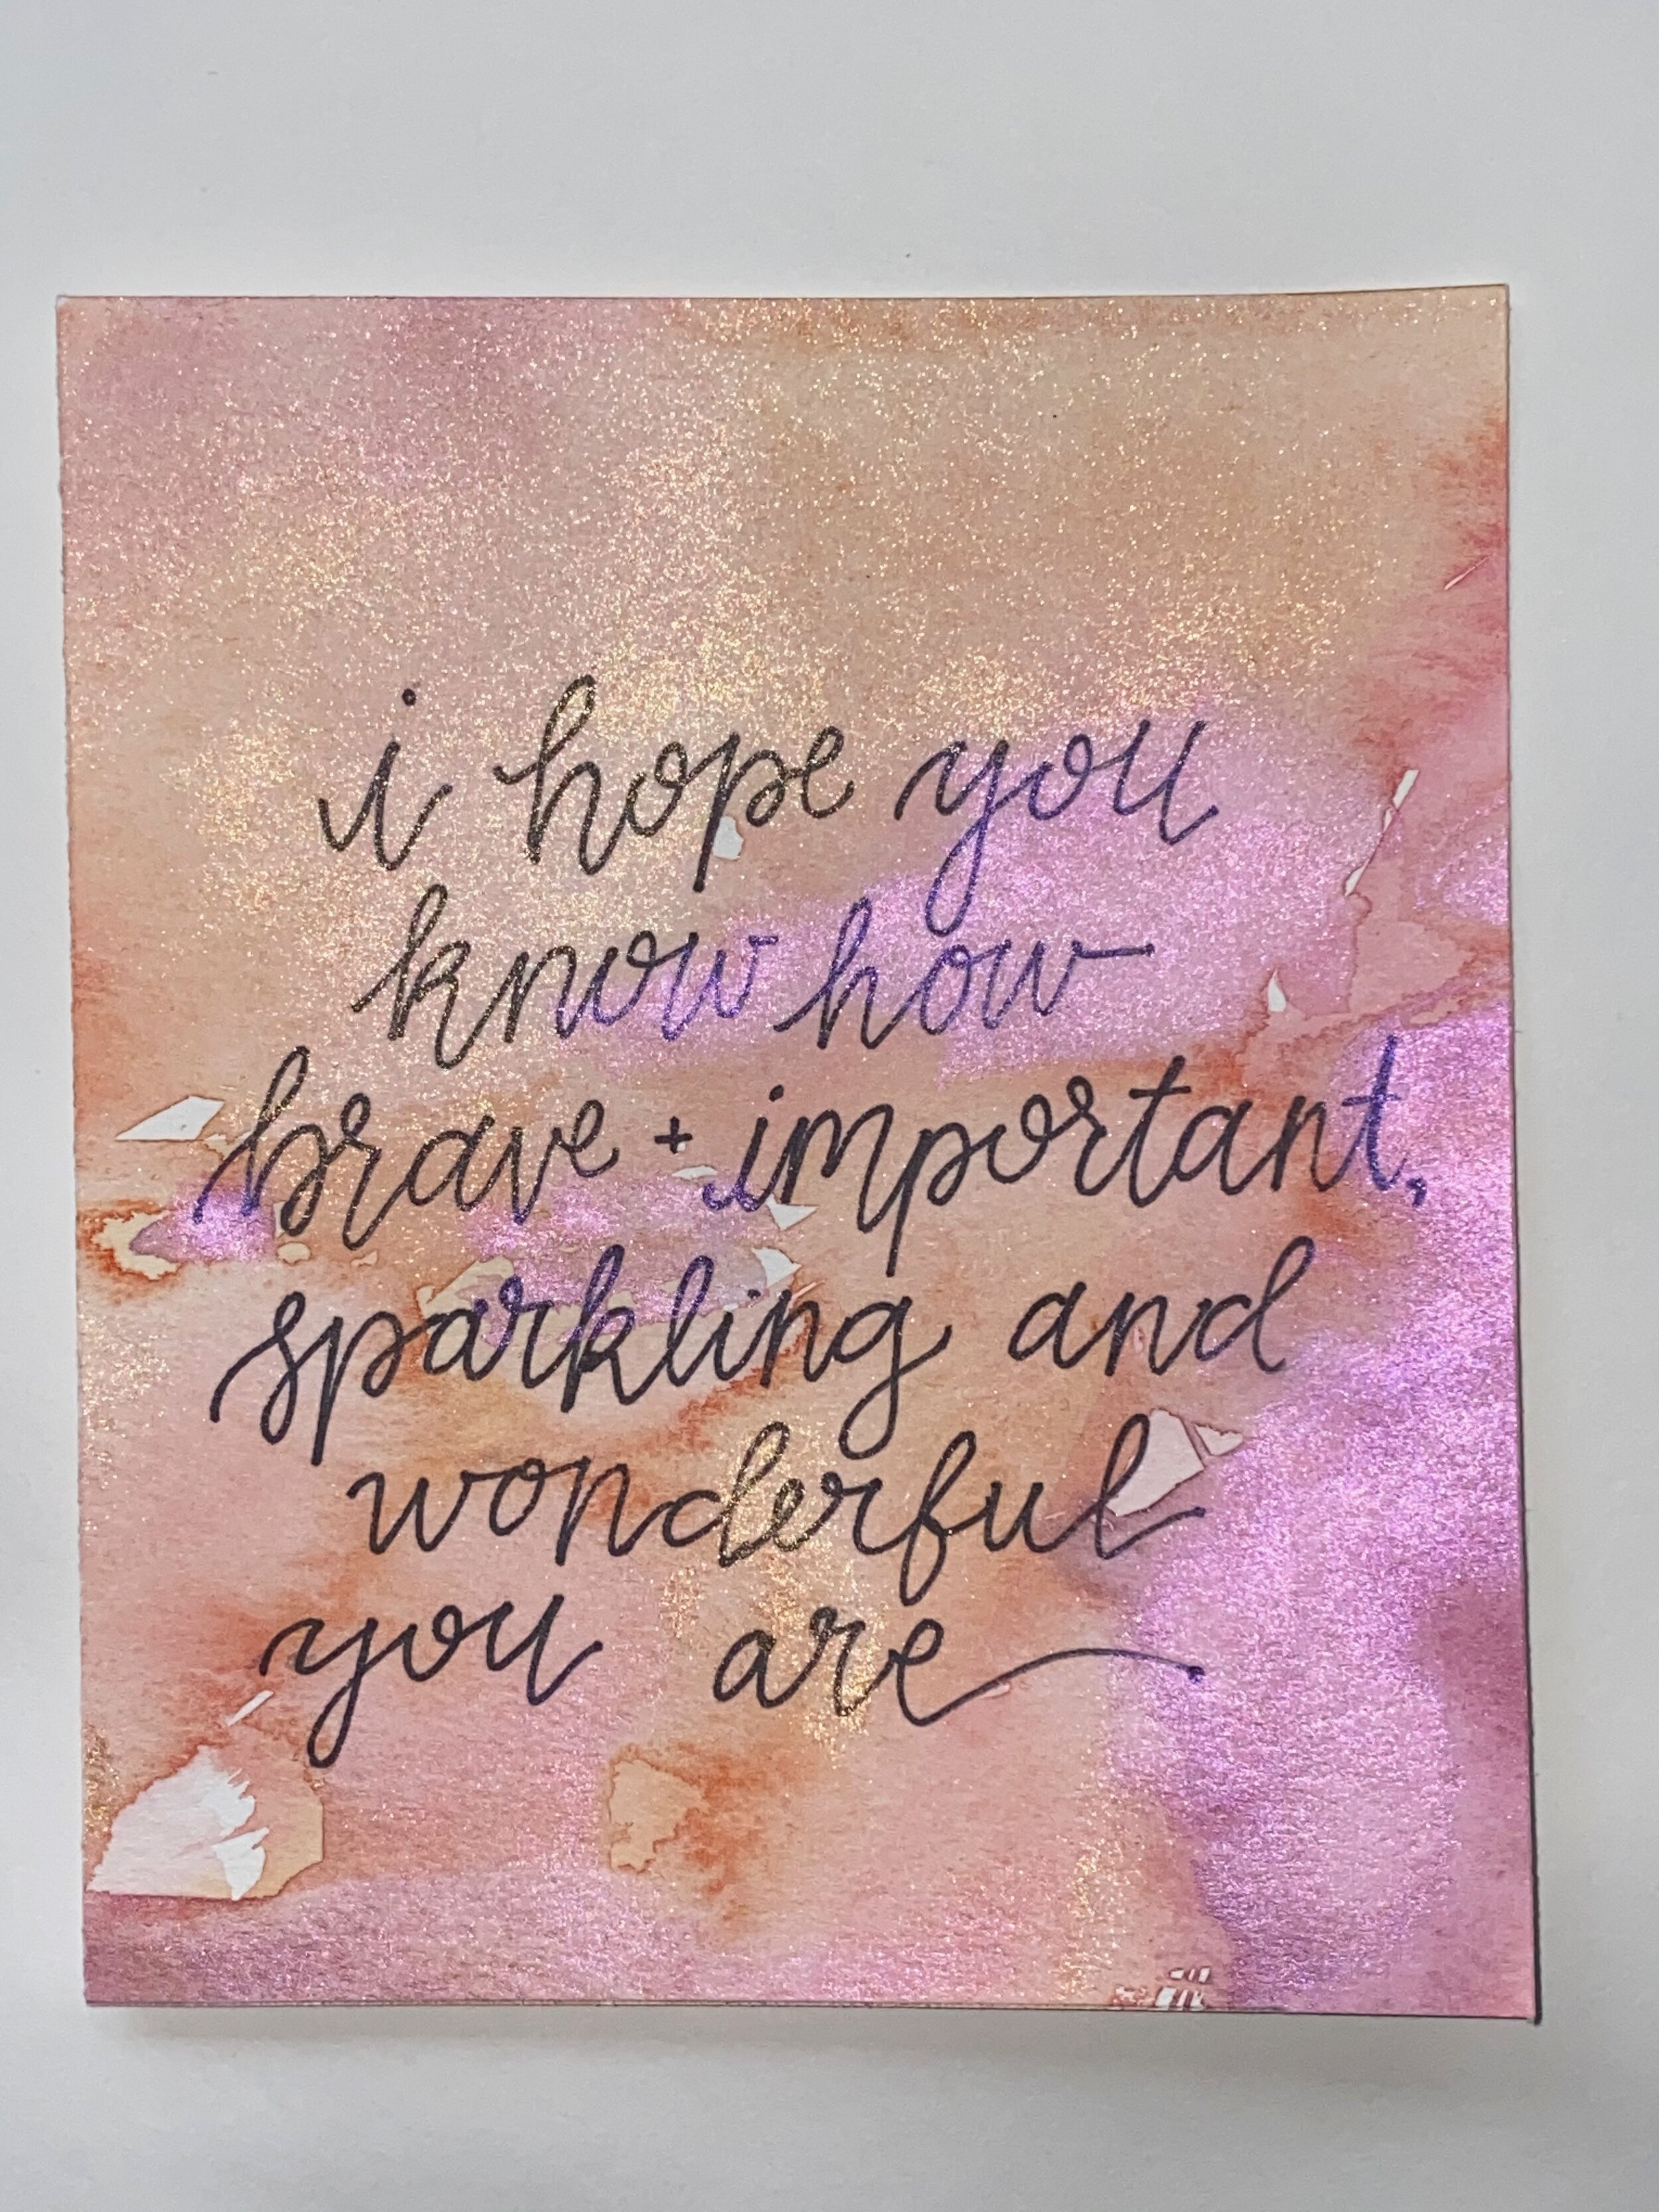 i hope you
know how
brave + important,
sparkling and
wonderful
you are